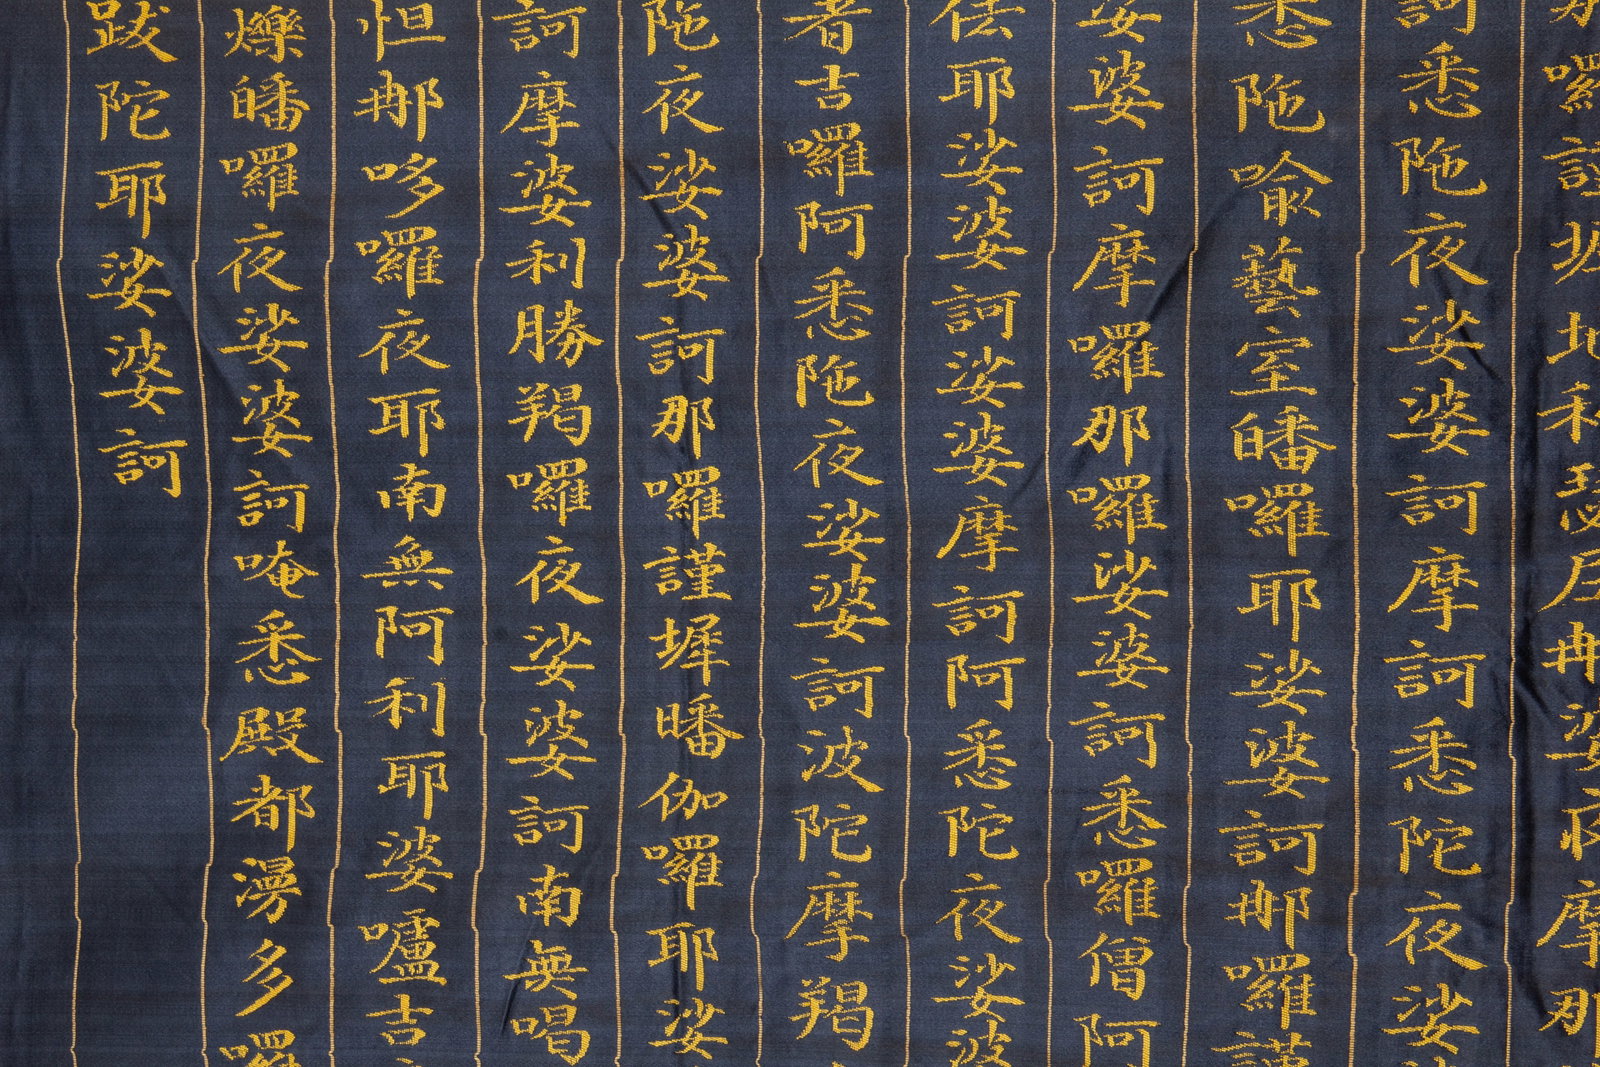 那囉謹墀地利瑟尼那婆夜摩那
訶悉陁夜娑婆訶摩訶悉陀夜娑
悉陁喻藝室皤囉耶娑婆訶那囉謹
娑婆訶摩囉那囉娑婆訶悉囉僧阿
佉耶娑婆訶娑婆摩訶阿悉陀夜娑婆
者吉囉阿悉陁夜娑婆訶波陀摩羯
陁夜娑婆訶那囉謹墀皤伽囉耶娑
訶摩婆利勝羯囉夜娑婆訶南無喝
怛那哆囉夜耶南無阿利耶婆嚧吉
爍皤囉夜娑婆訶唵悉殿都漫多囉
跋陀耶娑婆訶